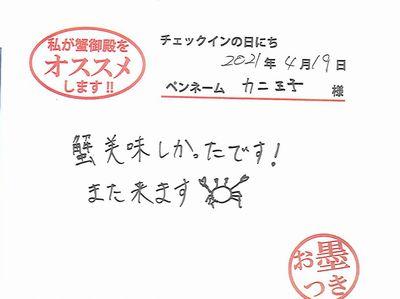 私が蟹御殿を
オススメ
します!!
チェックインの日にち
2021年 4月19日
ペンネーム カニ王子 様
蟹美味しかったです!
また来ます
お墨
つき